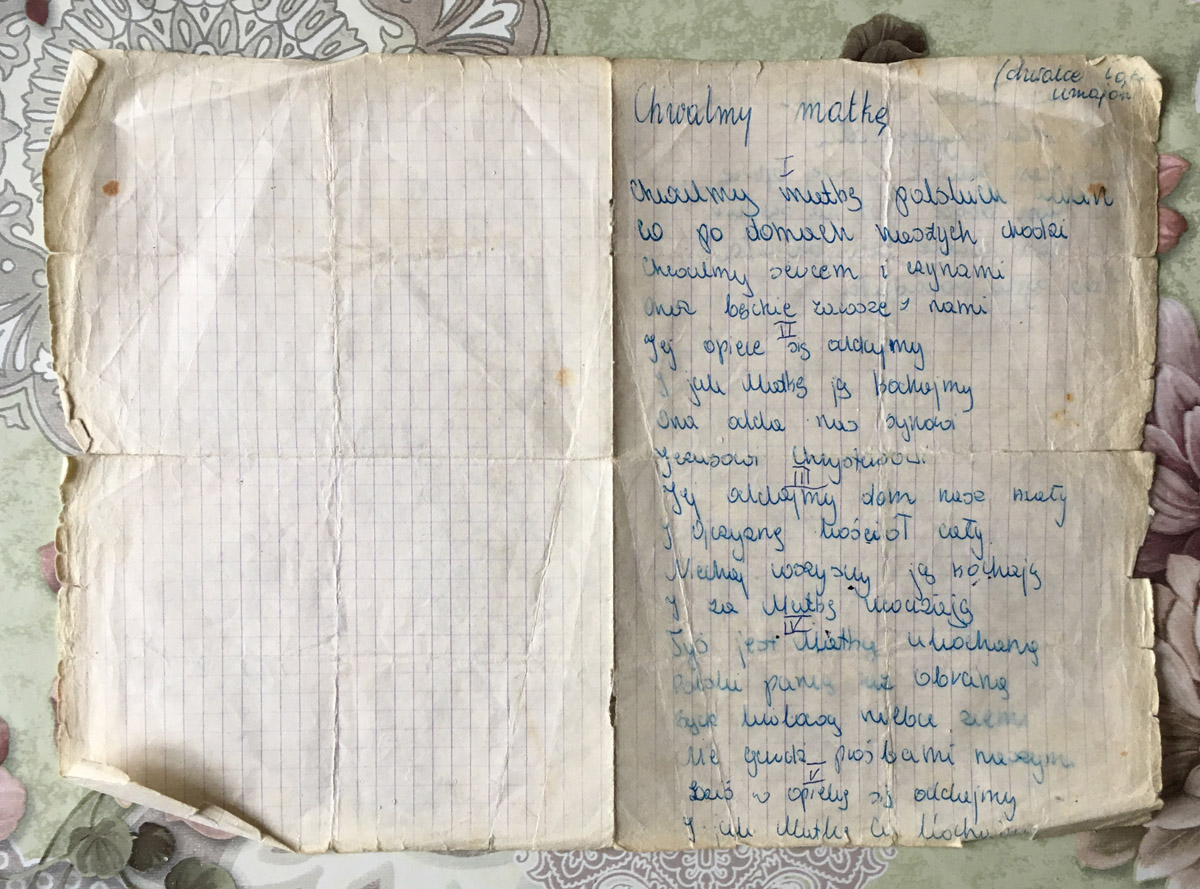 (chwalce łą
umajon
Chwalmy matkę
I
Chwalmy matkę polskich
Co po domach naszych chodzi
Chwalmy sercem i czynami
będzie zawsze z nami
II
Jej opiece się oddajmy
I jak Matkę ją kochajmy
Ona odda nas synowi
Jezusowi Chrystusowi
III
Jej oddajmy dom nasz mały
I Ojczyznę kościół cały
Niechaj wszyscy ją kochają
I za Matkę uważają
IV
Tyś jest Matką ukochaną
Polski panią już obraną
królową nieba ziemi
Nie gardź prośbami naszymi
V
w opiekę się oddajmy
I jak Matkę